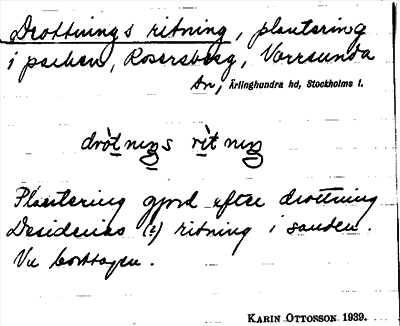 Drottnings ritning, plantering
i parken, Rosersberg, Norrsunda
sn, Ärlinghundra hd, Stockholms l.
dròtnings rìtning
Plantering gjord efter drottning
Desiderias (:) ritning i sanden.
Nu borttagen.
KARIN OTTOSSON 1939.